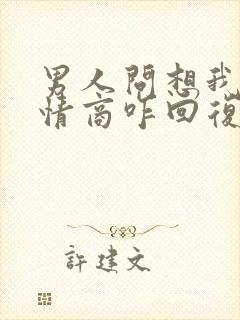 男人問想我
情商咋回復
許建文